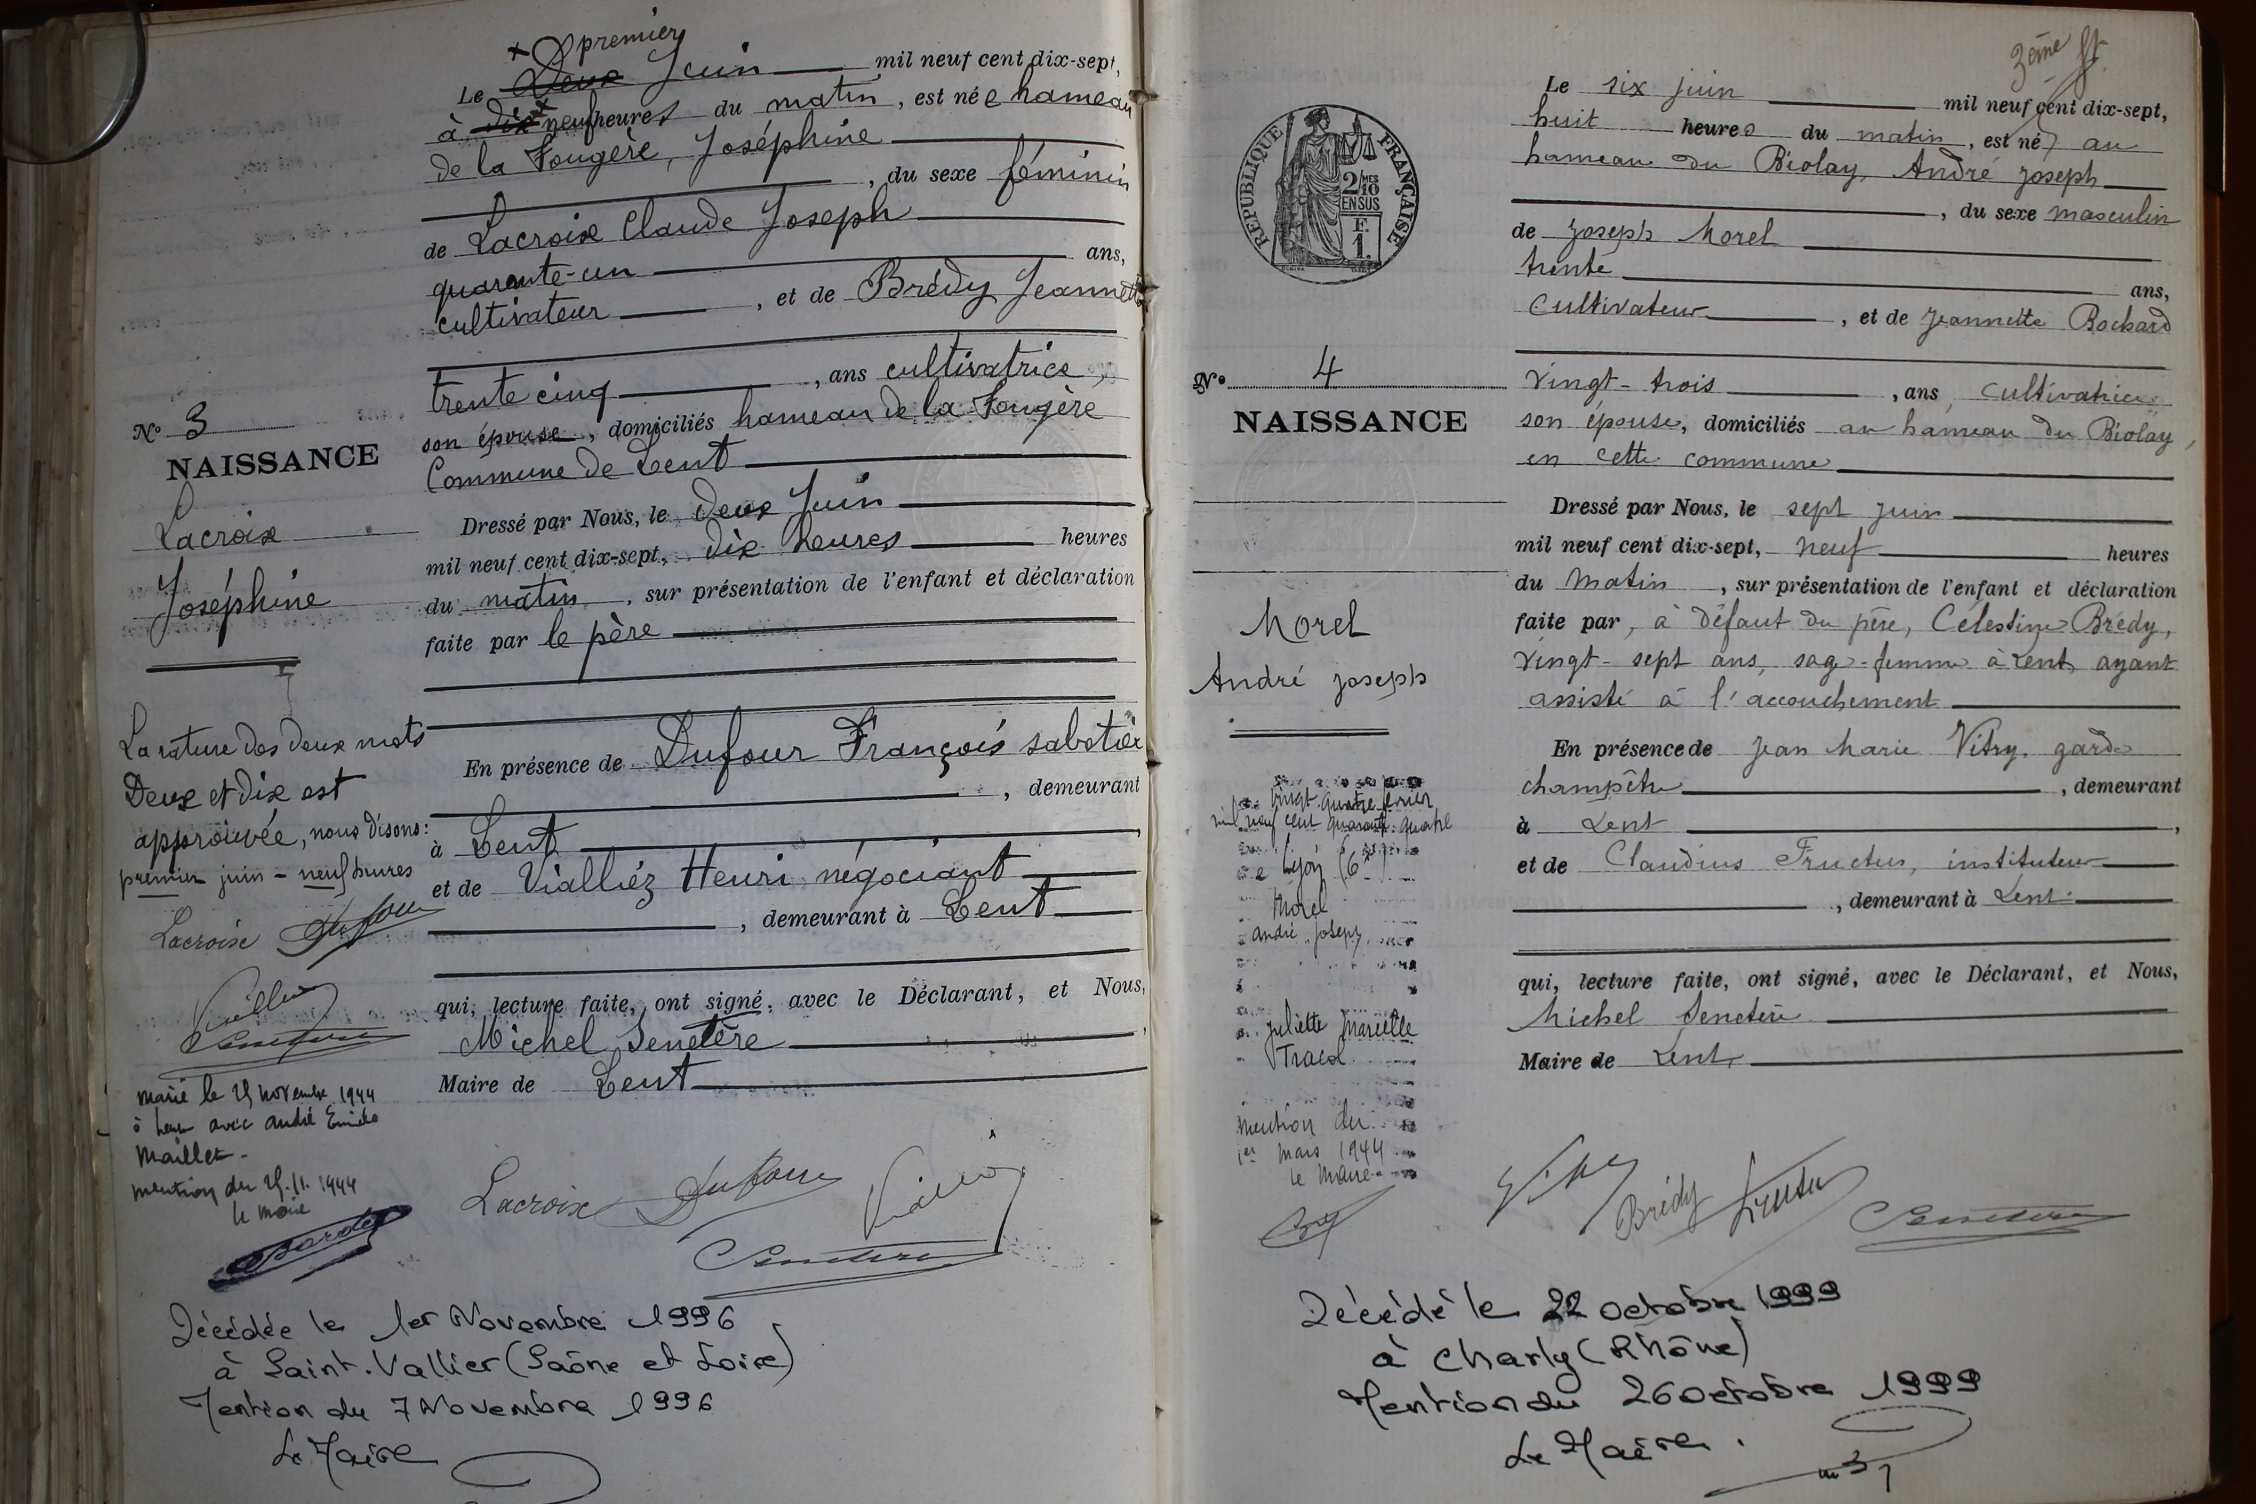 premier
Le Deux Juin mil neuf cent dix-sept,
à dix neuf heures du matin, est née hameau
de la Fougère, Joséphine
, du sexe féminin
de Lacroix Claude Joseph
quarante-un ans,
cultivateur, et de Brédy Jeannette
trente cinq, ans cultivatrice,
son épouse, domiciliés hameau de la Fougère
Commune de Lent
Dressé par Nous, le deux Juin
mil neuf cent dix-sept, dix heures heures
du matin, sur présentation de l'enfant et déclaration
faite par le père
En présence de Dufour François sabotier
, demeurant
à Lent,
et de Vialliéz Henri négociant
, demeurant à Lent
qui, lecture faite, ont signé, avec le Déclarant, et Nous,
Michel Senetère,
Maire de Lent
Lacroix Dufour
N° 3
NAISSANCE
Lacroix
Joséphine
La rature des deux mots
Deux et dix est
approuvée, nous disons:
premier juin - neuf heures
Lacroix Dufour
marié le 25 novembre 1944
à Lent avec andré Emile
Maillet -
mention du 25.11.1944
le maire
Décédée le 1er Novembre 1996
à Saint-Vallier (Saône et Loire)
Mention du 7 Novembre 1996
Le Maire
3ème
Le six juin mil neuf cent dix-sept,
huit heures du matin, est né au
hameau du Biolay, André Joseph
, du sexe masculin
de Joseph Morel
trente ans,
cultivateur, et de Jeannette Rochard
vingt-trois, ans, cultivatrice
son épouse, domiciliés au hameau du Biolay,
en cette commune
Dressé par Nous, le sept juin
mil neuf cent dix-sept, neuf heures
du matin, sur présentation de l'enfant et déclaration
faite par, à défaut du père, Célestine Brédy,
vingt-sept ans, sage-femme à Lent, ayant
assisté à l'accouchement
En présence de Jean Marie Vitry, garde
champêtre, demeurant
à Lent,
et de Claudius Fructus, instituteur
, demeurant à Lent
qui, lecture faite, ont signé, avec le Déclarant, et Nous,
Michel Senetère
Maire de Lent,
Brédy
RÉPUBLIQUE FRANÇAISE
2/10 MES
EN SUS
F.
1.
N° 4
NAISSANCE
Morel
André Joseph
vingt quatre février
mil neuf cent quarante quatre
Lyon (6e)
Morel
andré Joseph
Juliette Marcelle
mention du
1er mars 1944
le maire
Décédé le 22 octobre 1999
à Charly (Rhône)
Mention du 26 octobre 1999
Le Maire.